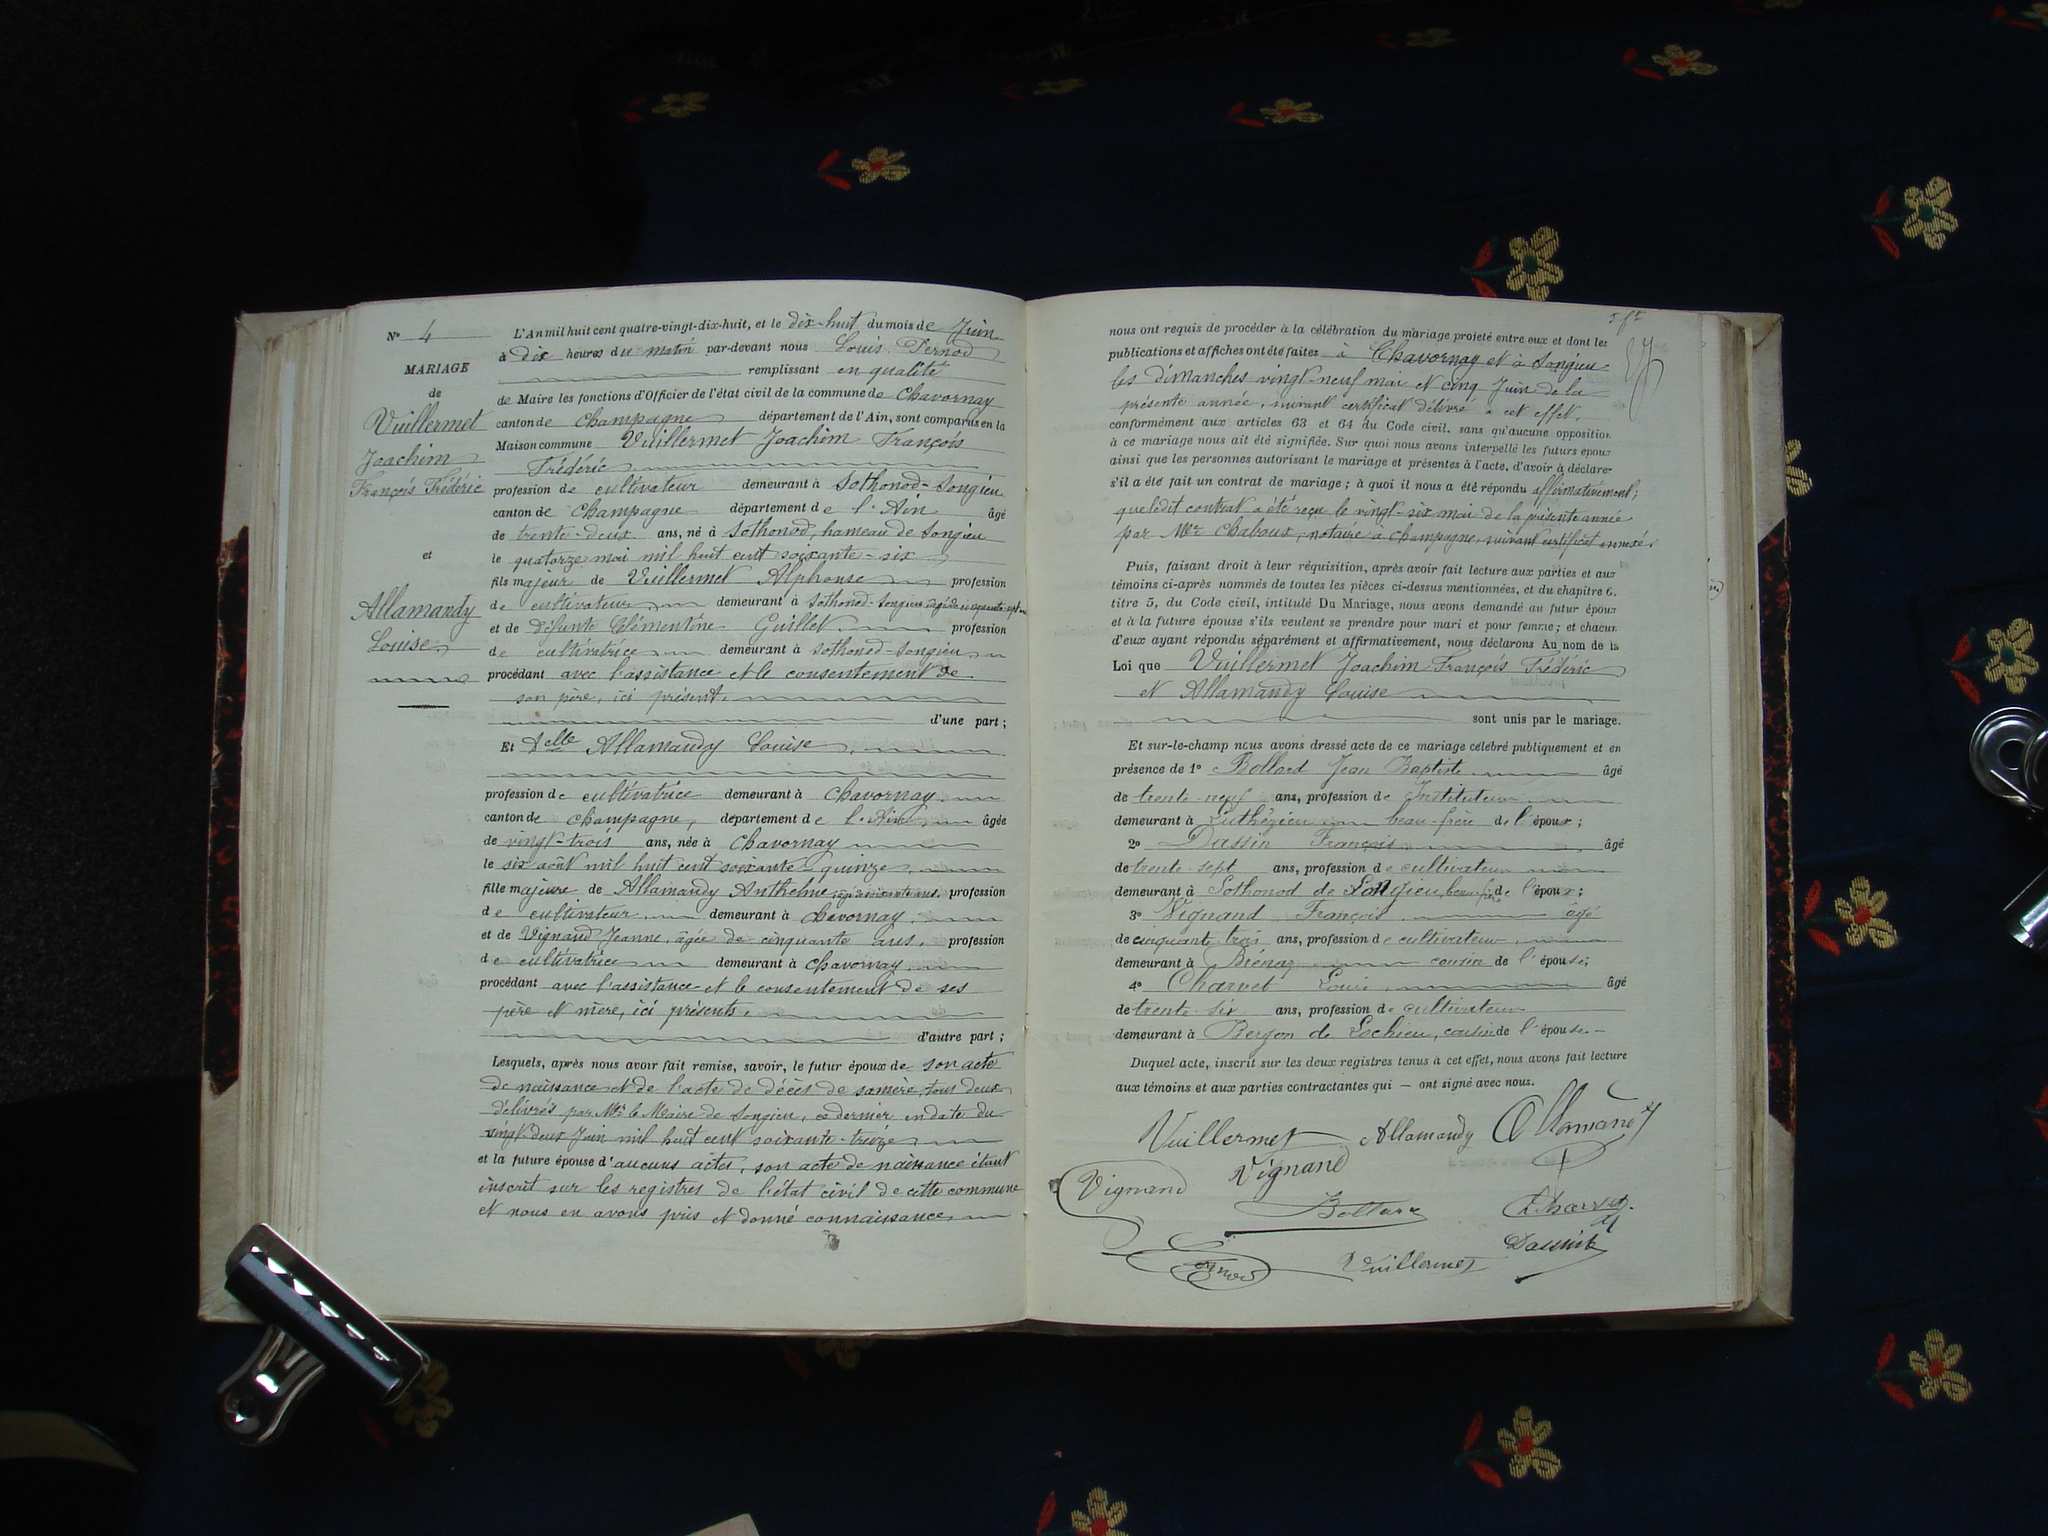 N° 4
MARIAGE
de
Vuillermet
Joachim
François Frédéric
et
Allamandy
Louise
L'An mil huit cent quatre-vingt-dix-huit, et le dix-huit du mois de Juin
à dix heures du matin par-devant nous Louis Pernod
remplissant en qualité
de Maire les fonctions d'Officier de l'état civil de la commune de Chavornay
canton de Champagne département de l'Ain, sont comparus en la
Maison commune Vuillermet Joachim François
Frédéric
profession de cultivateur demeurant à Sothonod-Songieu
canton de Champagne département de l'Ain âgé
de trente-deux ans, né à Sothonod, hameau de Songieu
le quatorze mai mil huit cent soixante-six
fils majeur de Vuillermet Alphonse profession
de cultivateur demeurant à Sothonod-Songieu
et de défunte Clémentine Guillet profession
de cultivatrice demeurant à Sothonod-Songieu
procédant avec l'assistance et le consentement de
son père, ici présent,
d'une part ;
Et Delle Allamandy Louise,
profession de cultivatrice demeurant à Chavornay
canton de Champagne, département de l'Ain âgée
de vingt-trois ans, née à Chavornay
le six août mil huit cent soixante-quinze,
fille majeure de Allamandy Anthelme, profession
de cultivateur demeurant à Chavornay,
et de Vignand Jeanne, âgée de cinquante ans, profession
de cultivatrice demeurant à Chavornay,
procédant avec l'assistance et le consentement de ses
père et mère, ici présents,
d'autre part ;
Lesquels, après nous avoir fait remise, savoir, le futur époux de son acte
de naissance et de l'acte de décès de sa mère, tous deux
délivrés par Mr le Maire de Songieu, ce dernier en date du
vingt-deux Juin mil huit cent soixante-treize
et la future épouse d'aucuns actes, son acte de naissance étant
inscrit sur les registres de l'état civil de cette commune
et nous en avons pris et donné connaissance
nous ont requis de procéder à la célébration du mariage projeté entre eux et dont les
publications et affiches ont été faites à Chavornay et à Songieu
les dimanches vingt-neuf mai et cinq Juin de la
présente année, suivant certificat délivré à cet effet,
conformément aux articles 63 et 64 du Code civil, sans qu'aucune opposition
à ce mariage nous ait été signifiée. Sur quoi nous avons interpellé les futurs époux
ainsi que les personnes autorisant le mariage et présentes à l'acte, d'avoir à déclarer
s'il a été fait un contrat de mariage ; à quoi il nous a été répondu affirmativement ;
que ledit contrat a été reçu le vingt-six mai de la présente année
par Mr Chaboux, notaire à Champagne, suivant certificat annexé.
Puis, faisant droit à leur réquisition, après avoir fait lecture aux parties et aux
témoins ci-après nommés de toutes les pièces ci-dessus mentionnées, et du chapitre 6,
titre 5, du Code civil, intitulé Du Mariage, nous avons demandé au futur époux
et à la future épouse s'ils veulent se prendre pour mari et pour femme ; et chacun
d'eux ayant répondu séparément et affirmativement, nous déclarons Au nom de la
Loi que Vuillermet Joachim François Frédéric
et Allamandy Louise
sont unis par le mariage.
Et sur-le-champ nous avons dressé acte de ce mariage célébré publiquement et en
présence de 1° Bollard Jean Baptiste âgé
de trente-neuf ans, profession de Instituteur
demeurant à Luthézieu beau-frère de l'époux ;
2° Dassin François âgé
de trente-sept ans, profession de cultivateur
demeurant à Sothonod de Songieu, beau-fre de l'époux ;
3° Vignand François âgé
de cinquante-trois ans, profession de cultivateur
demeurant à Brénaz cousin de l'épouse ;
4° Charvet Louis, âgé
de trente-six ans, profession de cultivateur
demeurant à Bergon de Lochieu, cousin de l'épouse.
Duquel acte, inscrit sur les deux registres tenus à cet effet, nous avons fait lecture
aux témoins et aux parties contractantes qui — ont signé avec nous.
Vuillermet Allamandy Allamandy
Vignand Vignand
Charvet
Dassin
Vuillermet